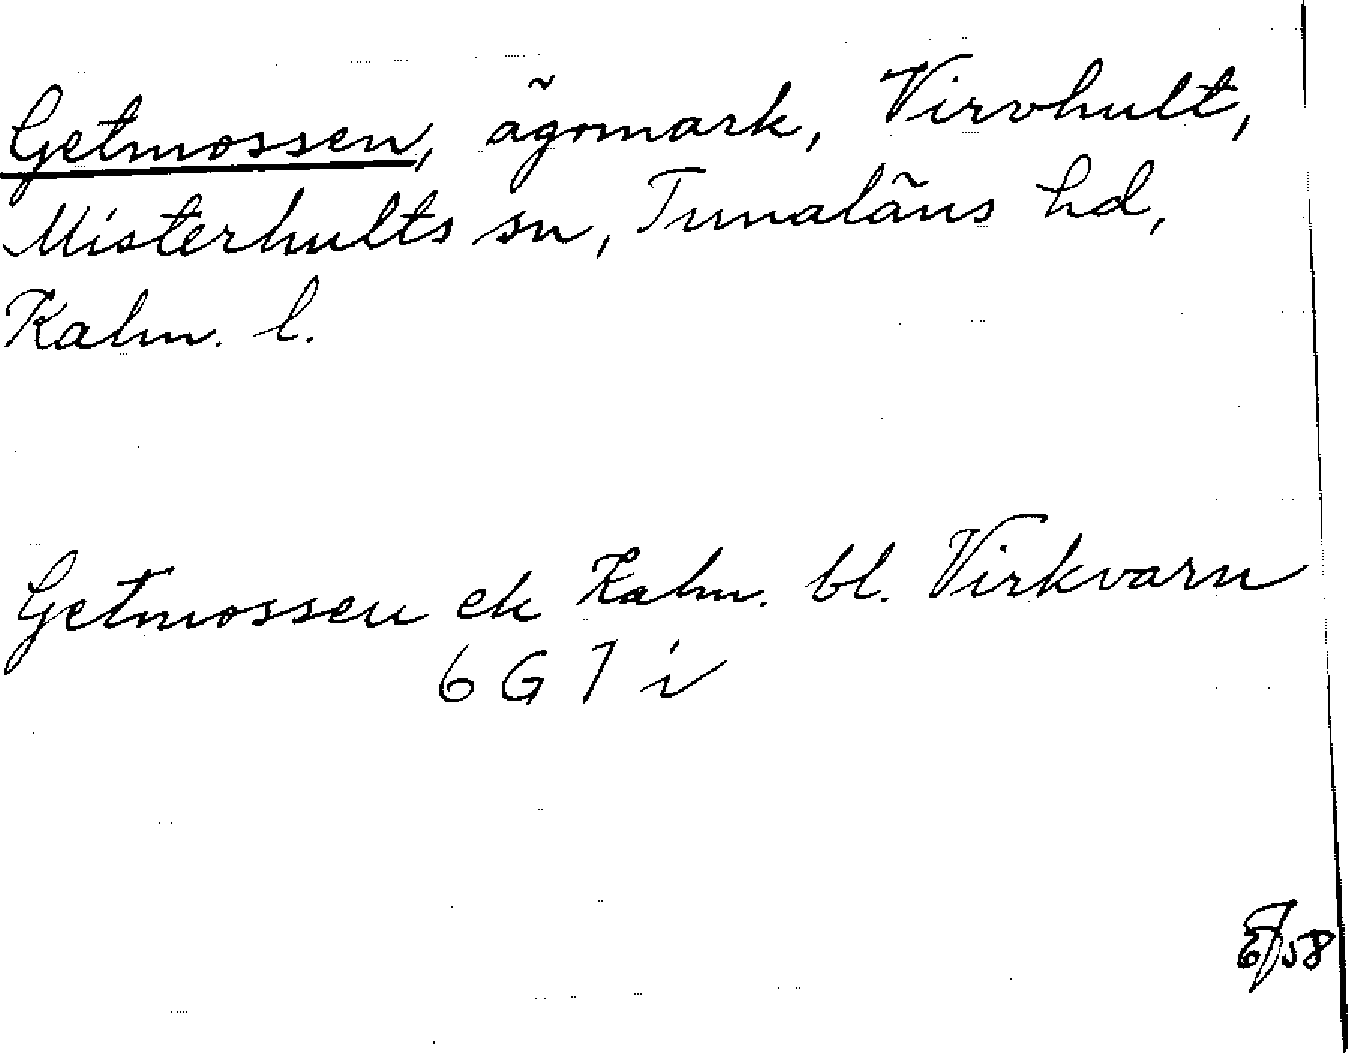 Getmossen, ägomark, Virvhult,
Misterhults sn, Tunaläns hd,
Kalm. l.
Getmossen ek Kalm. bl. Virkvarn
6 G 7 i
/58